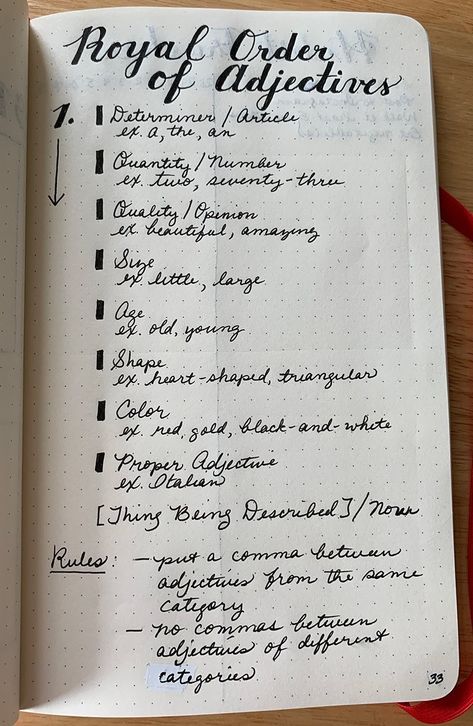 Royal Order
of Adjectives
1. Determiner / Article
ex. a, the, an
Quantity / Number
ex. two, seventy-three
Quality / Opinion
ex. beautiful, amazing
Size
ex. little, large
Age
ex. old, young
Shape
ex. heart-shaped, triangular
Color
ex. red, gold, black-and-white
Proper Adjective
ex. Italian
[Thing Being Described] / Noun
Rules: - put a comma between
adjectives from the same
category
- no commas between
adjectives of different
categories
33